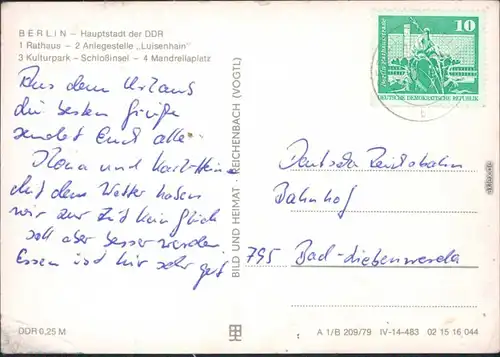 BERLIN – Hauptstadt der DDR
1 Rathaus – 2 Anlegestelle „Luisenhain"
3 Kulturpark – Schloßinsel – 4 Mandrellaplatz
Aus dem Urlaub
die besten Grüße
sendet Euch alle
Mona und Karl-Heinz
Mit dem Wetter haben
wir zur Zeit kein Glück
soll aber besser werden
Essen ist hier sehr gut
BILD UND HEIMAT · REICHENBACH (VOGTL)
10
DEUTSCHE DEMOKRATISCHE REPUBLIK
Deutsche Reichsbahn
Bahnhof
795 Bad-Liebenwerda
DDR 0,25 M
A 1/B 209/79 IV-14-483 02 15 16 044